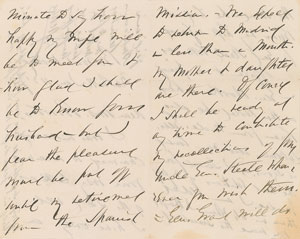 Minute to say how
happy my wife will
be to meet you &
how glad I shall
be to know your
husband - but I
fear the pleasure
must be put off
until my retirement
from the Spanish
Mission - We expect
to return to Madrid
in less than a month.
My Mother & daughter
are there. Of course
I shall be ready at
any time to contribute
my recollections of my
Uncle Gen.
you wish them.
will do